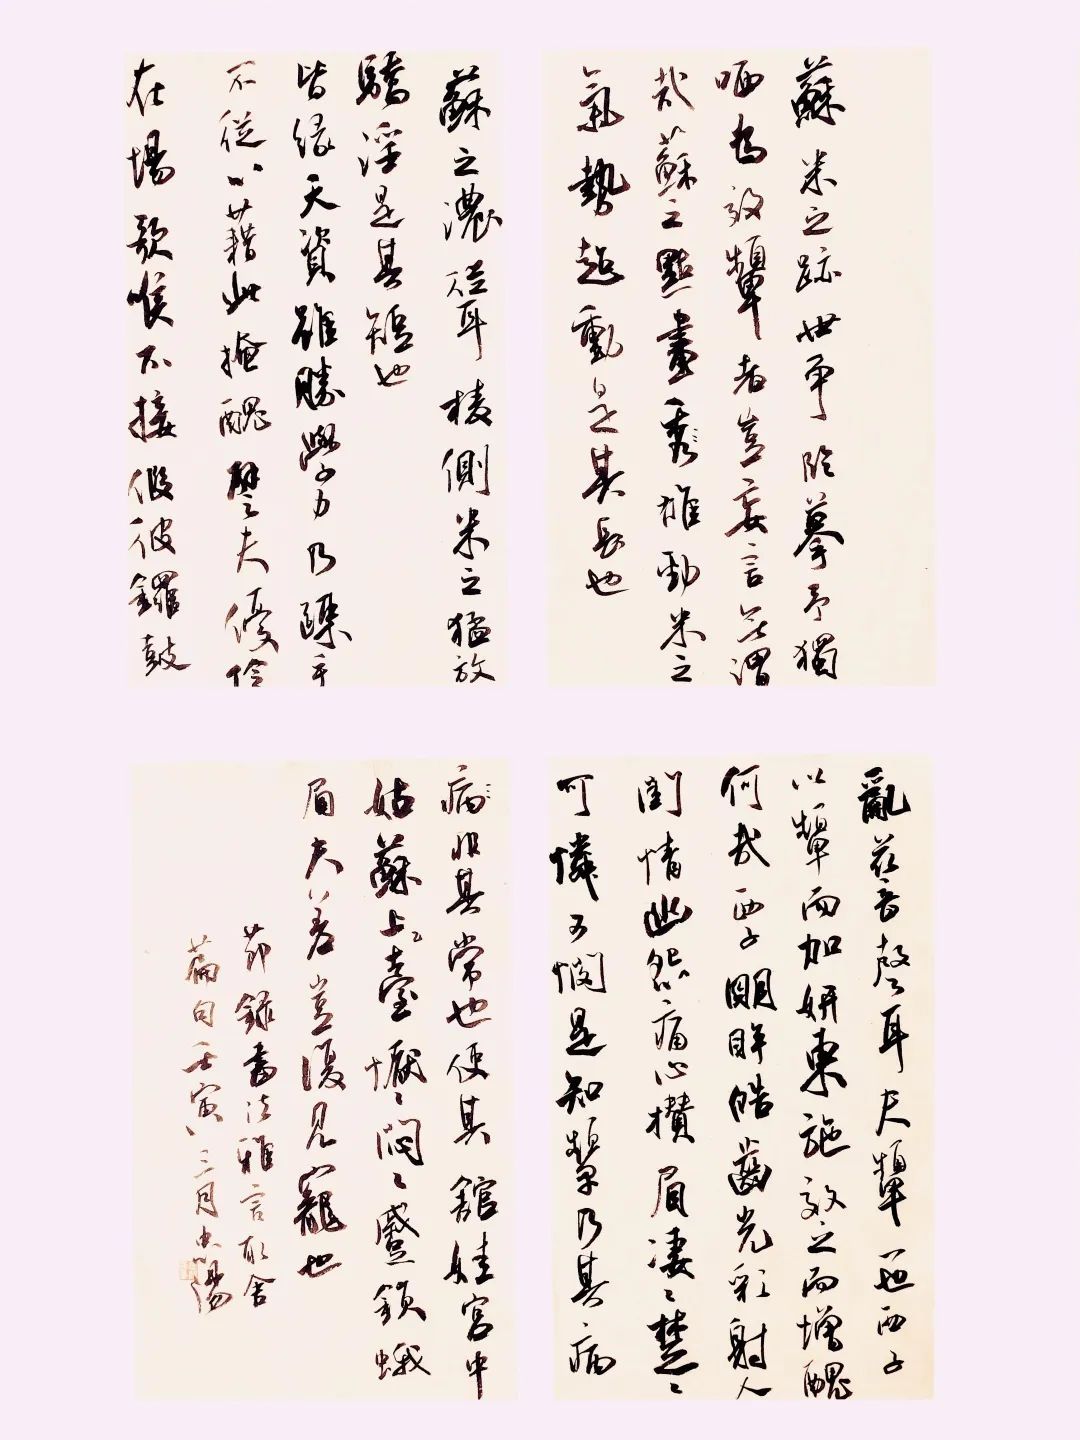 蘇米之跡世爭臨摹予獨
哂為效顰者豈妄言無謂
哉蘇之點畫秀雄勁米之
氣勢超動是其長也
蘇之濃聳稜側米之猛放
驕淫是其短也
皆緣天資雖勝學力乃疎
不從以藉此掩醜譬夫優伶
在場歌喉不接假彼鑼鼓
亂茲音聲耳夫顰一也西子
以顰而加妍東施效之而增醜
何哉西子明眸皓齒光彩射人
閨情幽怨痛心攢眉淒淒楚楚
可憐可憫是知顰乃其病
病非其常也使其館娃宮中
姑蘇臺上懨懨悶悶蹙鎖蛾
眉夫差豈復見寵也
節錄書法雅言取舍
篇句壬寅三月